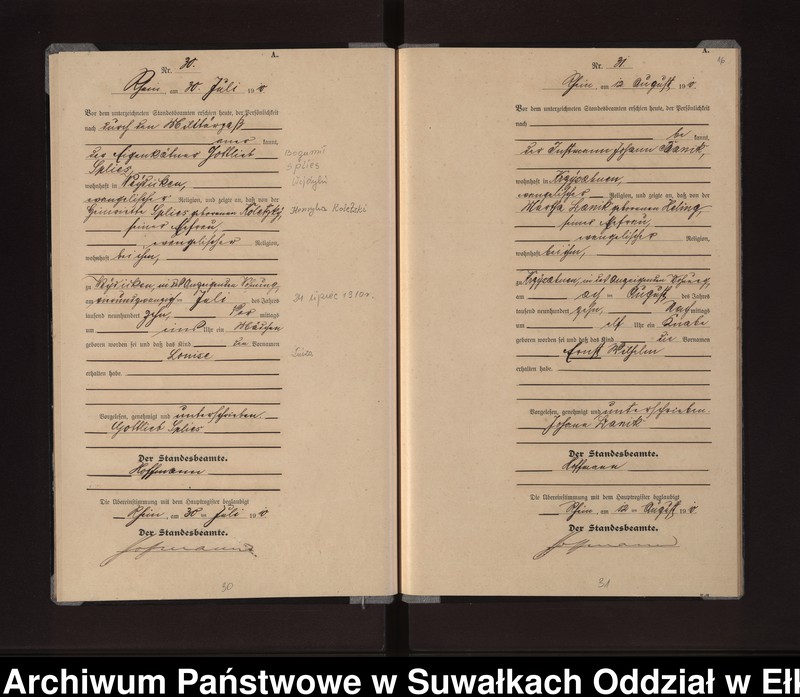 A.
Nr. 30.
Rhein, am 30. Juli 1910
Vor dem unterzeichneten Standesbeamten erschien heute, der Persönlichkeit
nach durch den Militärpaß
aner kannt,
der Eigenkätner Gottlieb
Splies,
wohnhaft in
evangelischer Religion, und zeigte an, daß von der
Splies geborenen
seiner Ehefrau
evangelischer Religion,
wohnhaft bei ihm,
zu in des Anzeigenden Wohnung,
am Juli des Jahres
tausend neunhundert zehn, Vor mittags
um eins Uhr ein Mädchen
geboren worden sei und daß das Kind die Vornamen
Louise
erhalten habe.
Vorgelesen, genehmigt und unterschrieben
Gottlieb Splies
Der Standesbeamte.
Hoffmann
Die Übereinstimmung mit dem Hauptregister beglaubigt
Rhein, am 30. Juli 1910.
Der Standesbeamte.
Hoffmann.
Bogumił
Splies
Henryka
31 lipiec 1910r.
30
A.
Nr. 31
Rhein, am 12 August 1910.
Vor dem unterzeichneten Standesbeamten erschien heute, der Persönlichkeit
nach
be kannt,
der Instmann Johann Kanik,
wohnhaft in
evangelischer Religion, und zeigte an, daß von der
Martha Kanik geborenen
seiner Ehefrau,
evangelischer Religion,
wohnhaft bei ihm,
zu in des Anzeigenden Wohnung,
am August des Jahres
tausend neunhundert zehn, Nach mittags
um elf Uhr ein Knabe
geboren worden sei und daß das Kind die Vornamen
Ernst Wilhelm
erhalten habe.
Vorgelesen, genehmigt und unterschrieben
Johann Kanik
Der Standesbeamte.
Hoffmann
Die Übereinstimmung mit dem Hauptregister beglaubigt
Rhein, am 12 August 1910.
Der Standesbeamte.
Hoffmann
31
Archiwum Państwowe w Suwałkach Oddział w Eł